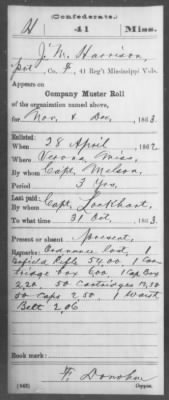 (Confederate.)
H 41 Miss.
J. M. Harrison,
Pvt., Co. F, 41 Reg't Mississippi Vols.
Appears on
Company Muster Roll
of the organization named above,
for Nov. & Dec., 1863
Enlisted:
When 28 April, 1862
Where Verona Miss.
By whom Capt. Nelson
Period 3 Yrs.
Last paid:
By whom Capt. Lockhart,
To what time 31 Oct., 1863.
Present or absent Present,
Remarks: Ordnance Lost, 1
Enfield Rifle 54.00 1 Car-
tridge box 6.00 1 Cap Box
2.20, 50 Cartridges
50 Caps 2.50 1 Waist
Belt 2.06
Book mark:
F. Donohue
(642) Copyist.